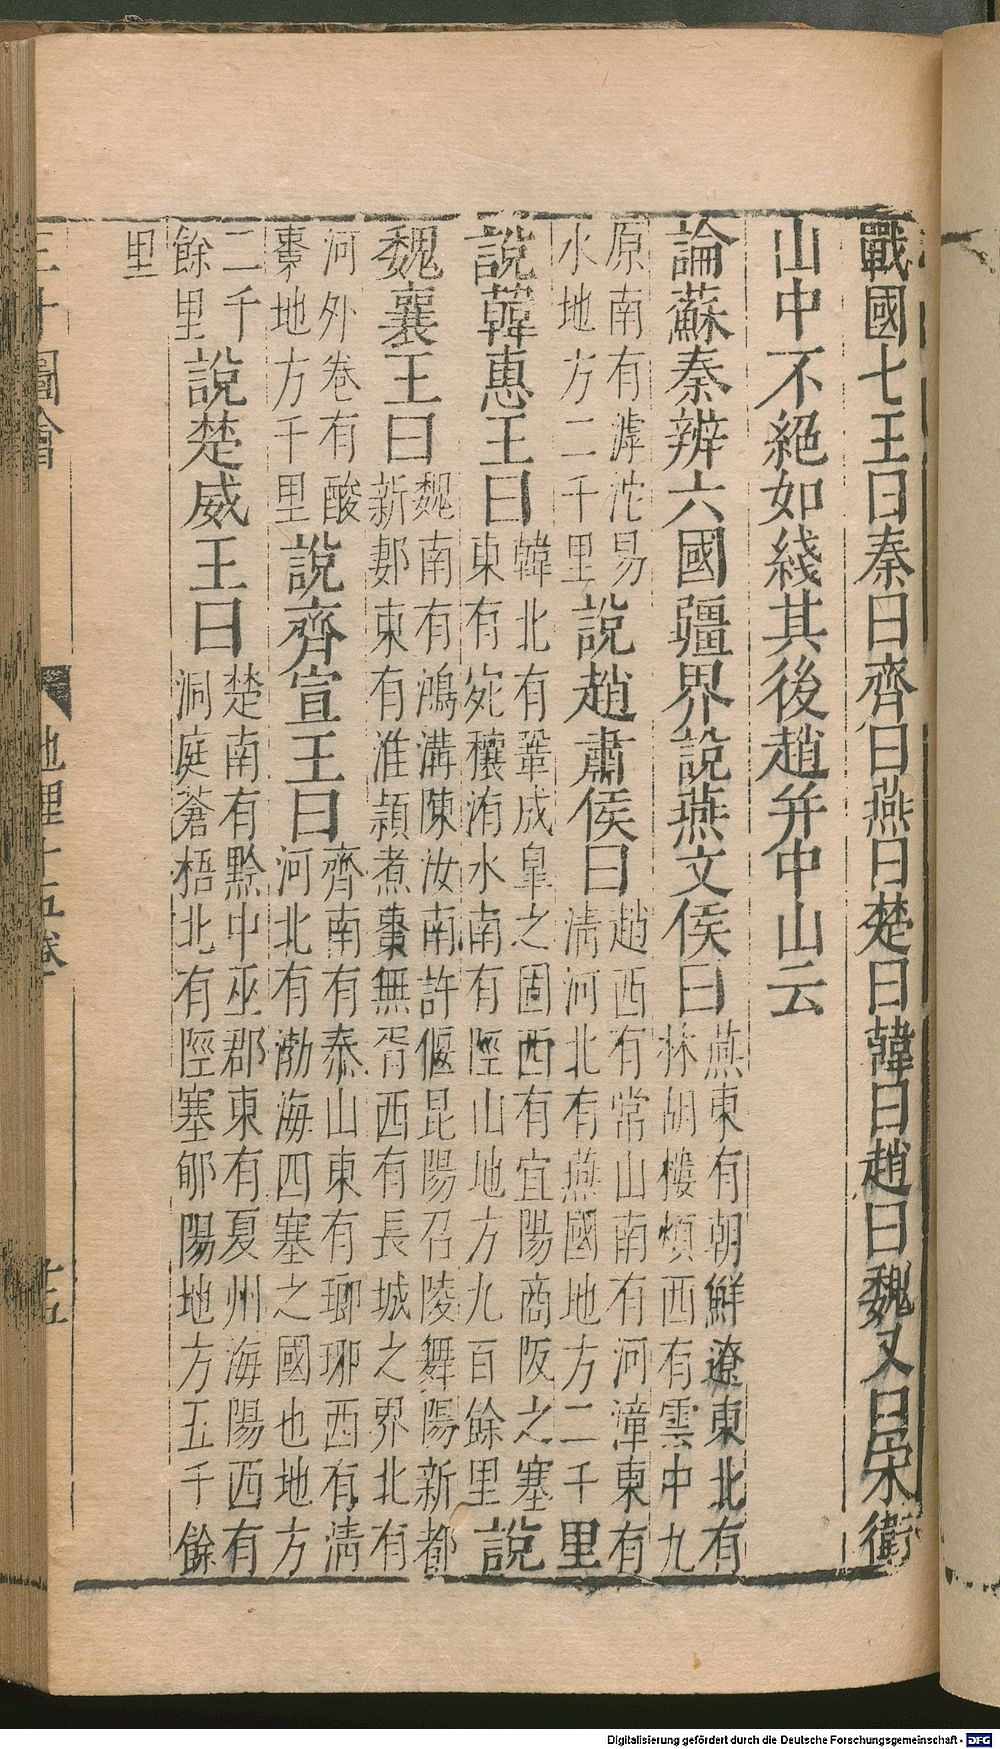 戰國七王曰秦曰齊曰燕曰楚曰韓曰趙曰魏又曰宋衛
山中不絕如綫其後趙并中山云
論蘇秦辨六國疆界說燕文侯曰燕東有朝鮮遼東北有
林胡樓煩西有雲中九
原南有滹沱易
水地方二千里說趙肅侯曰趙西有常山南有河漳東有
清河北有燕國地方二千里
說韓惠王曰韓北有鞏成皐之固西有宜陽商阪之塞
東有宛穰洧水南有陘山地方九百餘里說
魏襄王曰魏南有鴻溝陳汝南許偃昆陽召陵舞陽新都
新郪東有淮潁煮棗無胥西有長城之界北有
河外卷有酸
棗地方千里說齊宣王曰齊南有泰山東有瑯琊西有淸
河北有渤海四塞之國也地方
二千
餘里說楚威王曰楚南有黔中巫郡東有夏州海陽西有
洞庭蒼梧北有陘塞郇陽地方五千餘
里
三才圖會
地理十五卷
十五
Digitalisierung gefördert durch die Deutsche Forschungsgemeinschaft - DFG